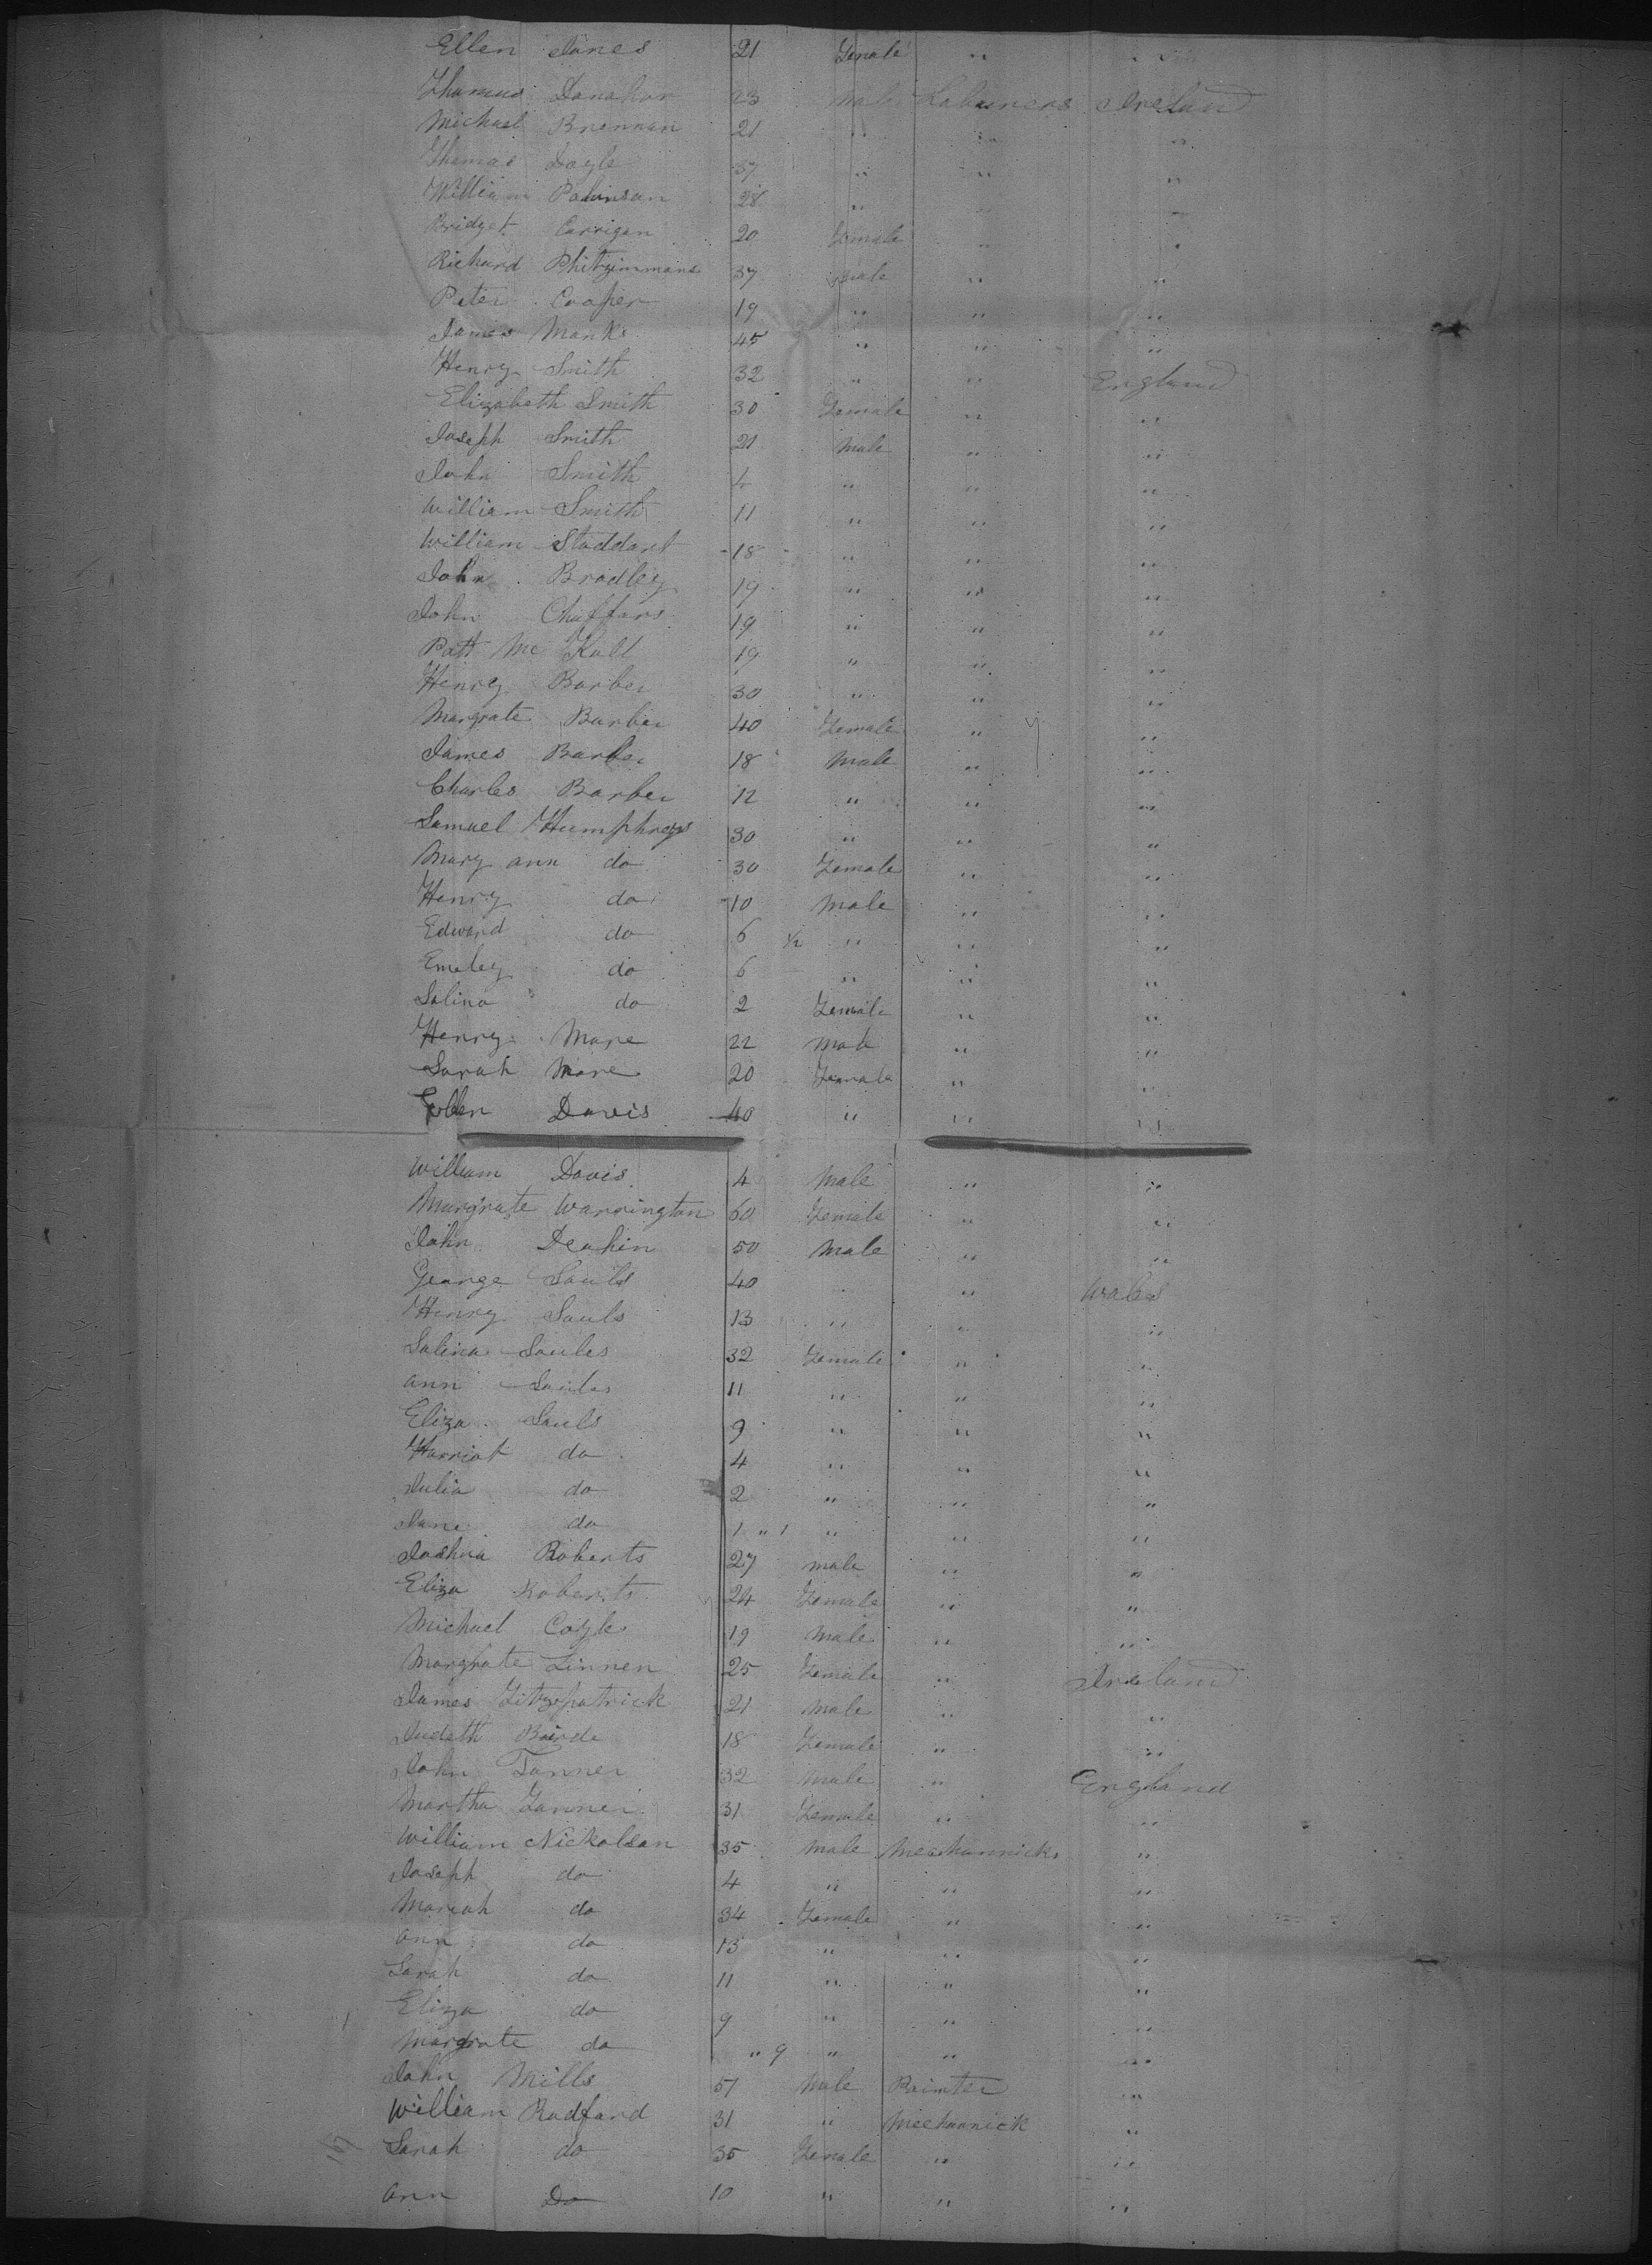 Ellen Jones 21 Female " "
Thomas Donahor 23 Male Labourers Ireland
Michael Brennan 21 " " "
Thomas Doyle 37 " " "
William Robinson 28 " " "
Bridget Carrigan 20 Female " "
Richard Phitzimmons 37 male " "
Peter Cooper 19 " " "
James Monks 45 " " "
Henry Smith 32 " " England
Elizabeth Smith 30 Female " "
Joseph Smith 21 Male " "
John Smith 4 " " "
William Smith 11 " " "
William Stoddart 18 " " "
John Bradley 19 " " "
John Chaffars 19 " " "
Patt Mc Kall 19 " " "
Henry Barber 30 " " "
Margrate Barber 40 Female " "
James Barber 18 Male " "
Charles Barber 12 " " "
Samuel Humphreys 30 " " "
Mary ann do 30 Female " "
Henry do 10 Male " "
Edward do 6 1/2 " " "
Emeley do 6 " " "
Salina do 2 Female " "
Henry More 22 Male " "
Sarah More 20 Female " "
Ellen Davis 40 " " "
William Davis 4 Male " "
Margrate Warrington 60 Female " "
John Deakin 50 Male " "
George Sauls 40 " Wales
Henry Sauls 13 " " "
Salina Saules 32 Female " "
ann Saules 11 " " "
Eliza Sauls 9 " " "
Harriot do 4 " " "
Julia do 2 " " "
Jane do 1 " 1 " " "
Joshua Roberts 27 male " "
Eliza Roberts 24 Female " "
Michael Coyle 19 Male " "
Margrate Linnen 25 Female " Ireland
James Fitzpatrick 21 Male " "
Judath Bairde 18 Female " "
John Tanner 32 Male " England
Martha Tanner 31 Female " "
William Nickolson 35 Male Mechannicks "
Joseph do 4 " " "
Mariah do 34 Female " "
Ann do 13 " " "
Sarah do 11 " " "
Eliza do 9 " " "
Margrate do " 9 " " "
John Mills 57 Male Painter "
William Radford 31 " Mechannick "
Sarah do 35 Female " "
Ann Do 10 " " "